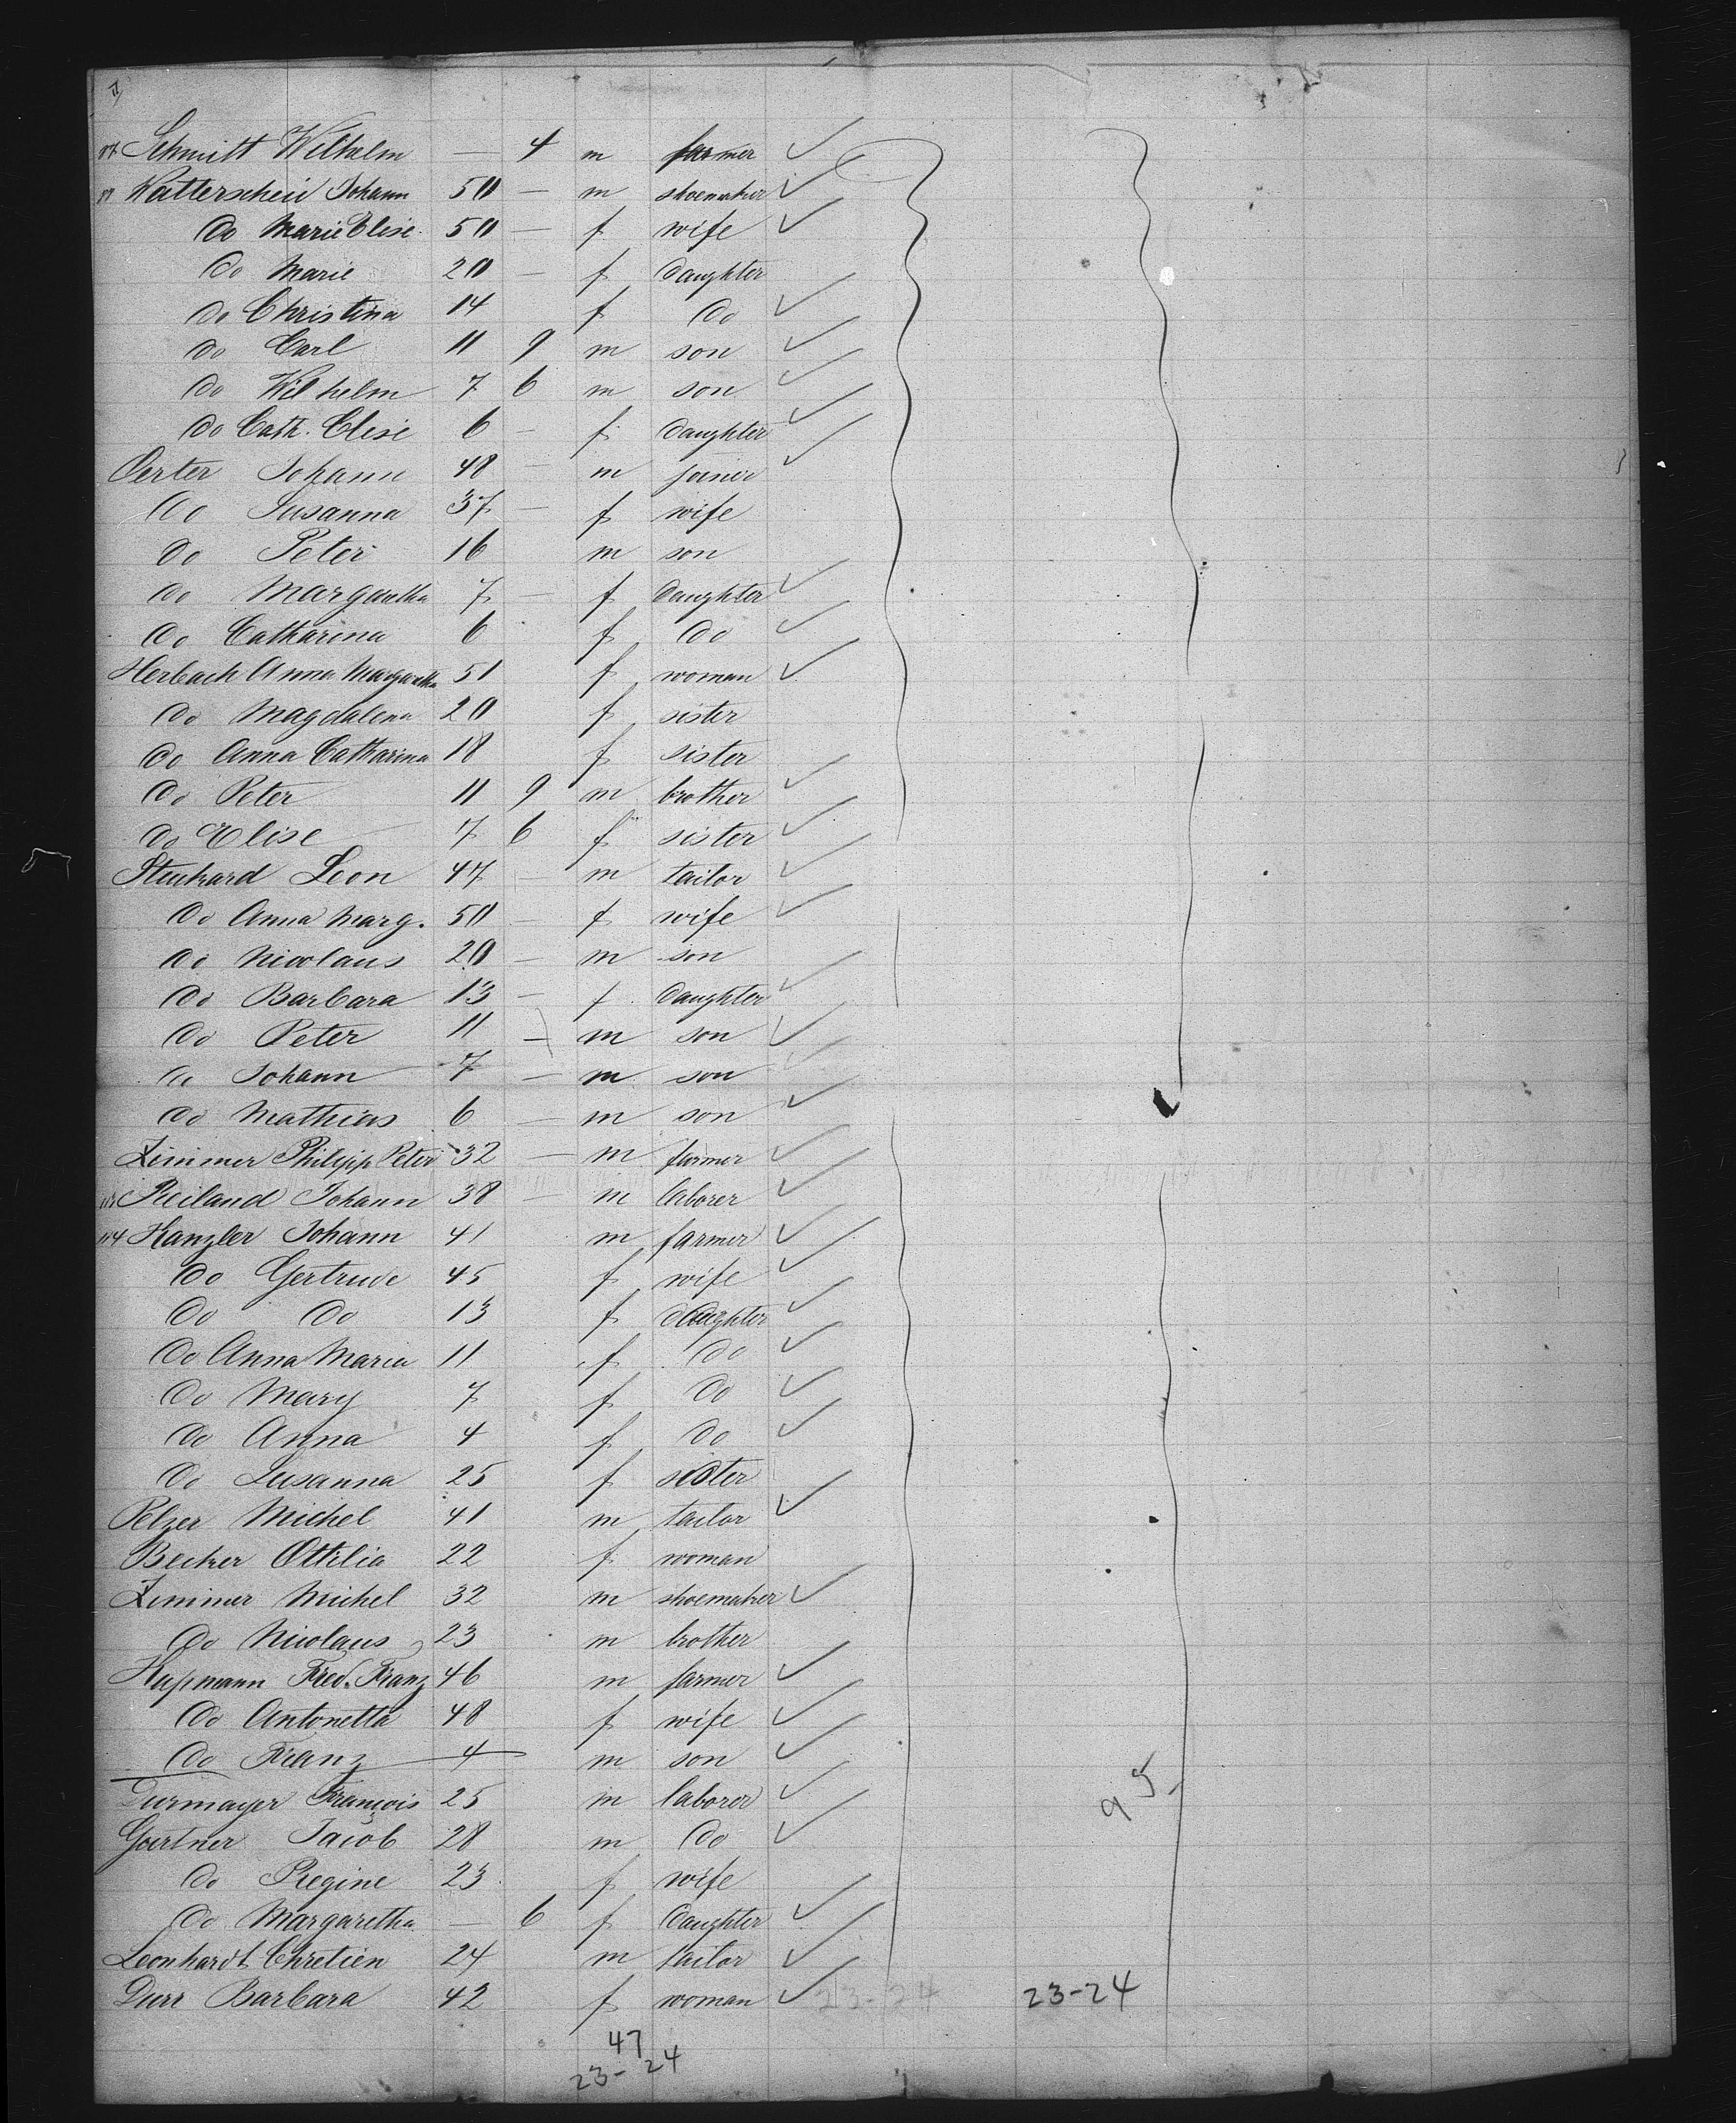 Schmitt Wilhelm — 4 m farmer
Watterscheid Johann 50 — m shoemaker
do Marie Elise 50 — f wife
do Marie 20 — f daughter
do Christina 14 f do
do Carl 11 9 m son
do Wilhelm 7 6 m son
do Cath. Elise 6 — f daughter
Oerter Johann 48 — m joiner
do Susanna 37 — f wife
do Peter 16 m son
do Margaretha 7 — f daughter
do Catharina 6 f do
Herbach Anna Margaretha 51 f woman
do Magdalena 20 f sister
do Anna Catharina 18 f sister
do Peter 11 9 m brother
do Elise 7 6 f sister
Stuckard Leon 47 — m tailor
do Anna Marg. 50 — f wife
do Nicolaus 20 — m son
do Barbara 13 — f daughter
do Peter 11 — m son
do Johann 7 — m son
do Mathias 6 — m son
Zimmer Philipp Peter 32 — m farmer
Reiland Johann 38 — m laborer
114 Kanzler Johann 41 m farmer
do Gertrude 45 f wife
do do 13 f daughter
do Anna Maria 11 f do
do Mary 7 f do
do Anna 4 f do
do Susanna 25 f sister
Pelzer Michel 41 m tailor
Becker Ottilia 22 f woman
Zimmer Michel 32 m shoemaker
do Nicolaus 23 m brother
Fred. Franz 46 m farmer
do Antonetta 48 f wife
do Franz 4 m son
Durmayer François 25 m laborer
95
Gaertner Jacob 28 m do
do Regine 23 f wife
do Margaretha — 6 f daughter
Leonhardt Chretien 24 m tailor
Durr Barbara 42 f woman 23-24 23-24
47
23-24